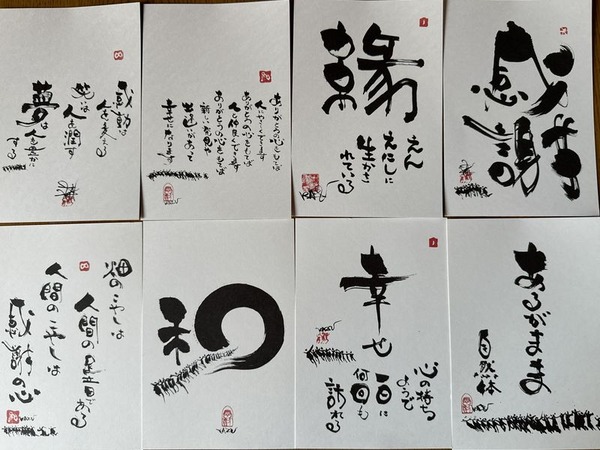 感動は
人を変える
笑いは
人を潤す
夢は
人を豊かに
する
ありがとうの心もてば
人にやさしくできます
ありがとうの心をもてば
人と仲良くできます
ありがとうの心をもてば
新しい発見や
出逢いがあって
幸せになります
縁
えん
えにしに
生かさ
れている
感謝
畑のこやしは
人間の足音である
人間のこやしは
感謝の心
和
幸せ
心の持ち
ようで
一日に
何回も
訪れる
あるがまま
自然体